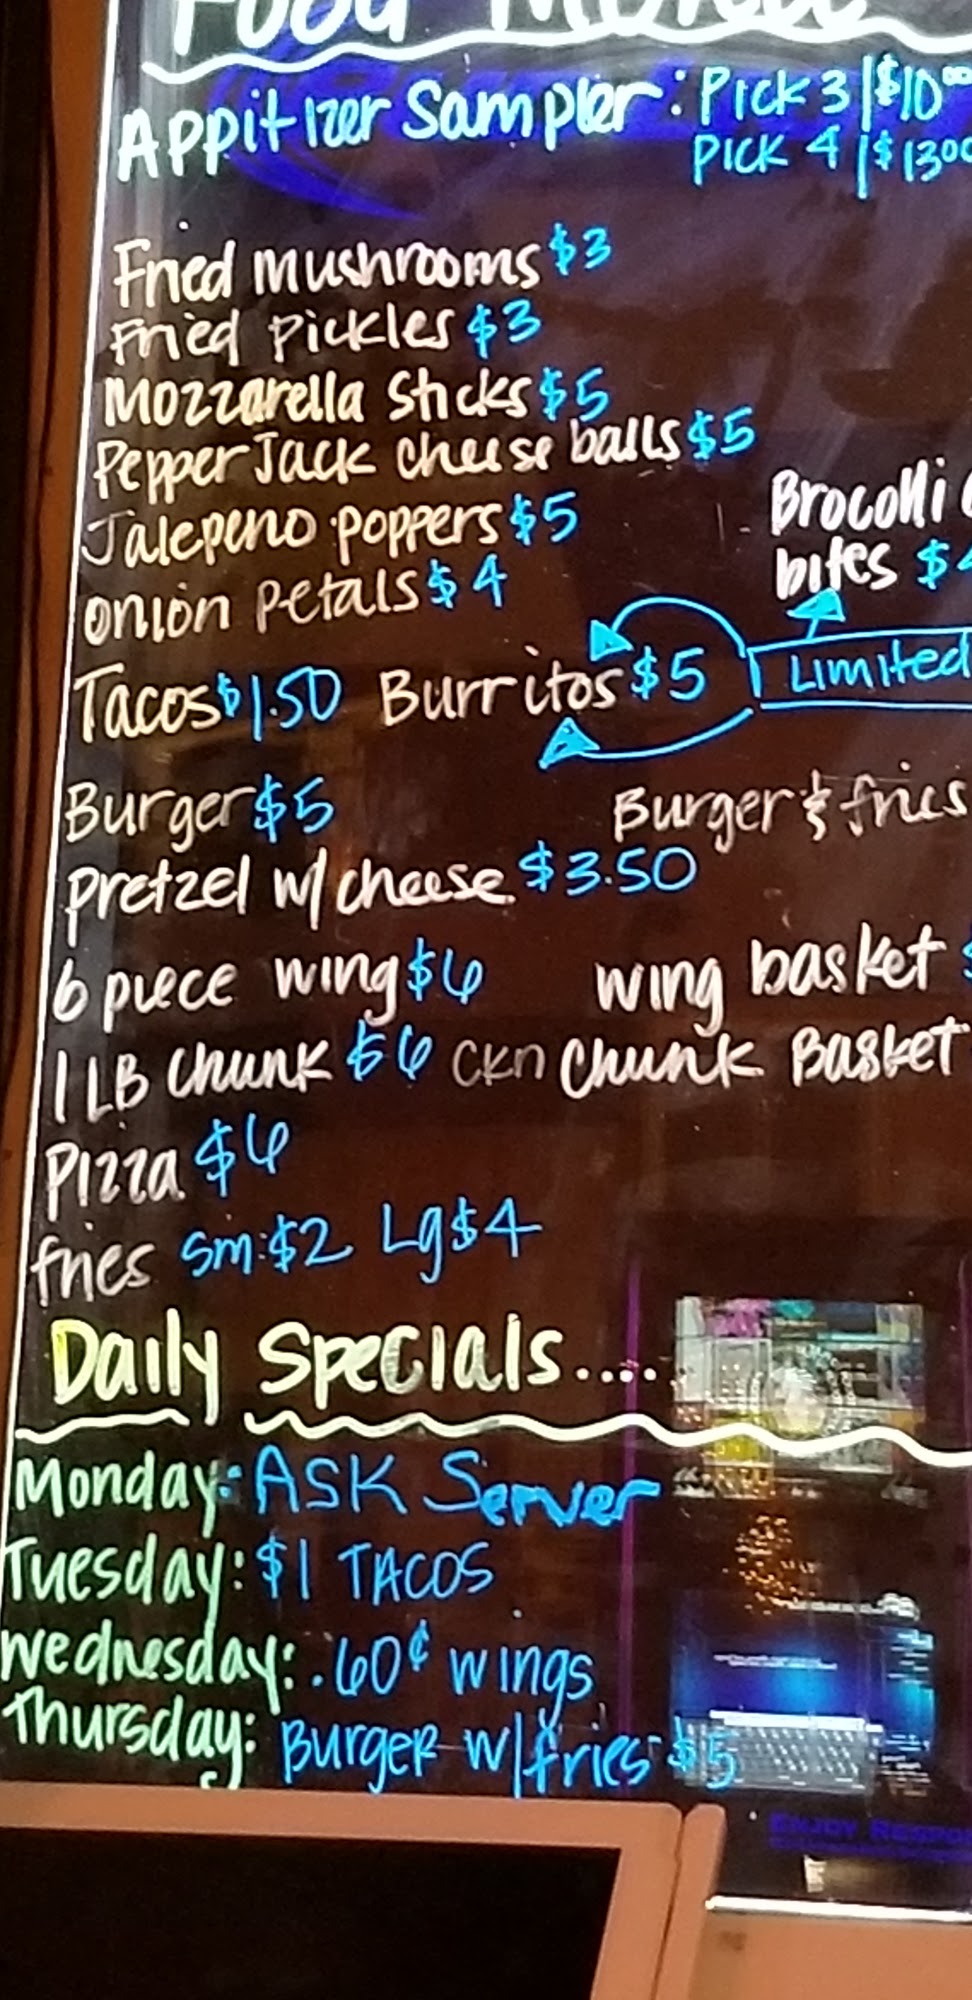 Food Menu
Appitizer Sampler: Pick 3 | $10⁰⁰
Pick 4 | $13⁰⁰
Fried mushrooms $3
Fried Pickles $3
Mozzarella Sticks $5
Pepper Jack cheese balls $5
Jalepeno poppers $5
Brocolli
bites $4
onion petals $4
Tacos $1.50 Burritos $5
Limited
Burger $5 Burger & fries
Pretzel w/ cheese $3.50
6 piece wing $6 wing basket
1 LB Chunk $6 Ckn Chunk Basket
Pizza $6
fries sm:$2 Lg $4
Daily Specials....
Monday: ASK Server
Tuesday: $1 TACOS
Wednesday: .60¢ wings
Thursday: Burger w/fries $5
Enjoy